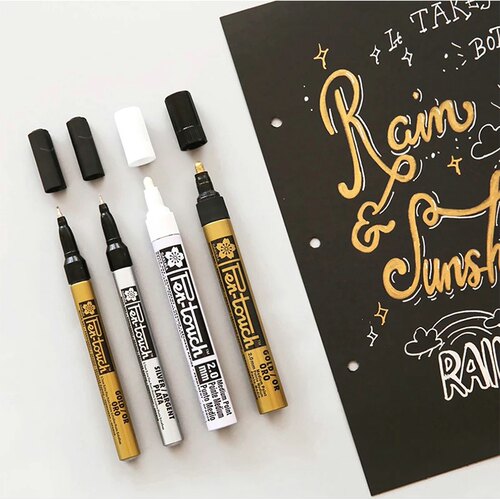 It TAKES
BOT
Rain
& Sunsh
RAIN
Pen-touch
GOLD OR
ORO
Pen-touch
SILVER ARGENT
PLATA
Pen-touch
2.0
mm
Medium Point
Pointe Moyenne
Punta Media
Pen-touch
GOLD OR
ORO